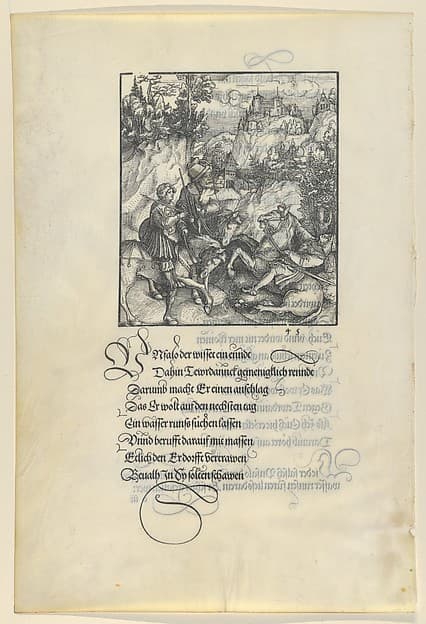 45
Unfalo der wisset ein ennde
Dahin Tewrdannck geineniglich rennde
Darumb macht Er einen anschlag
Das Er wolt auf den nechsten tag
Ein wasser runss suechen lassen
Vnnd berufft darauf mit massen
Etlich den Er dorfft vertrawen
Beualh In Sy solten schawen